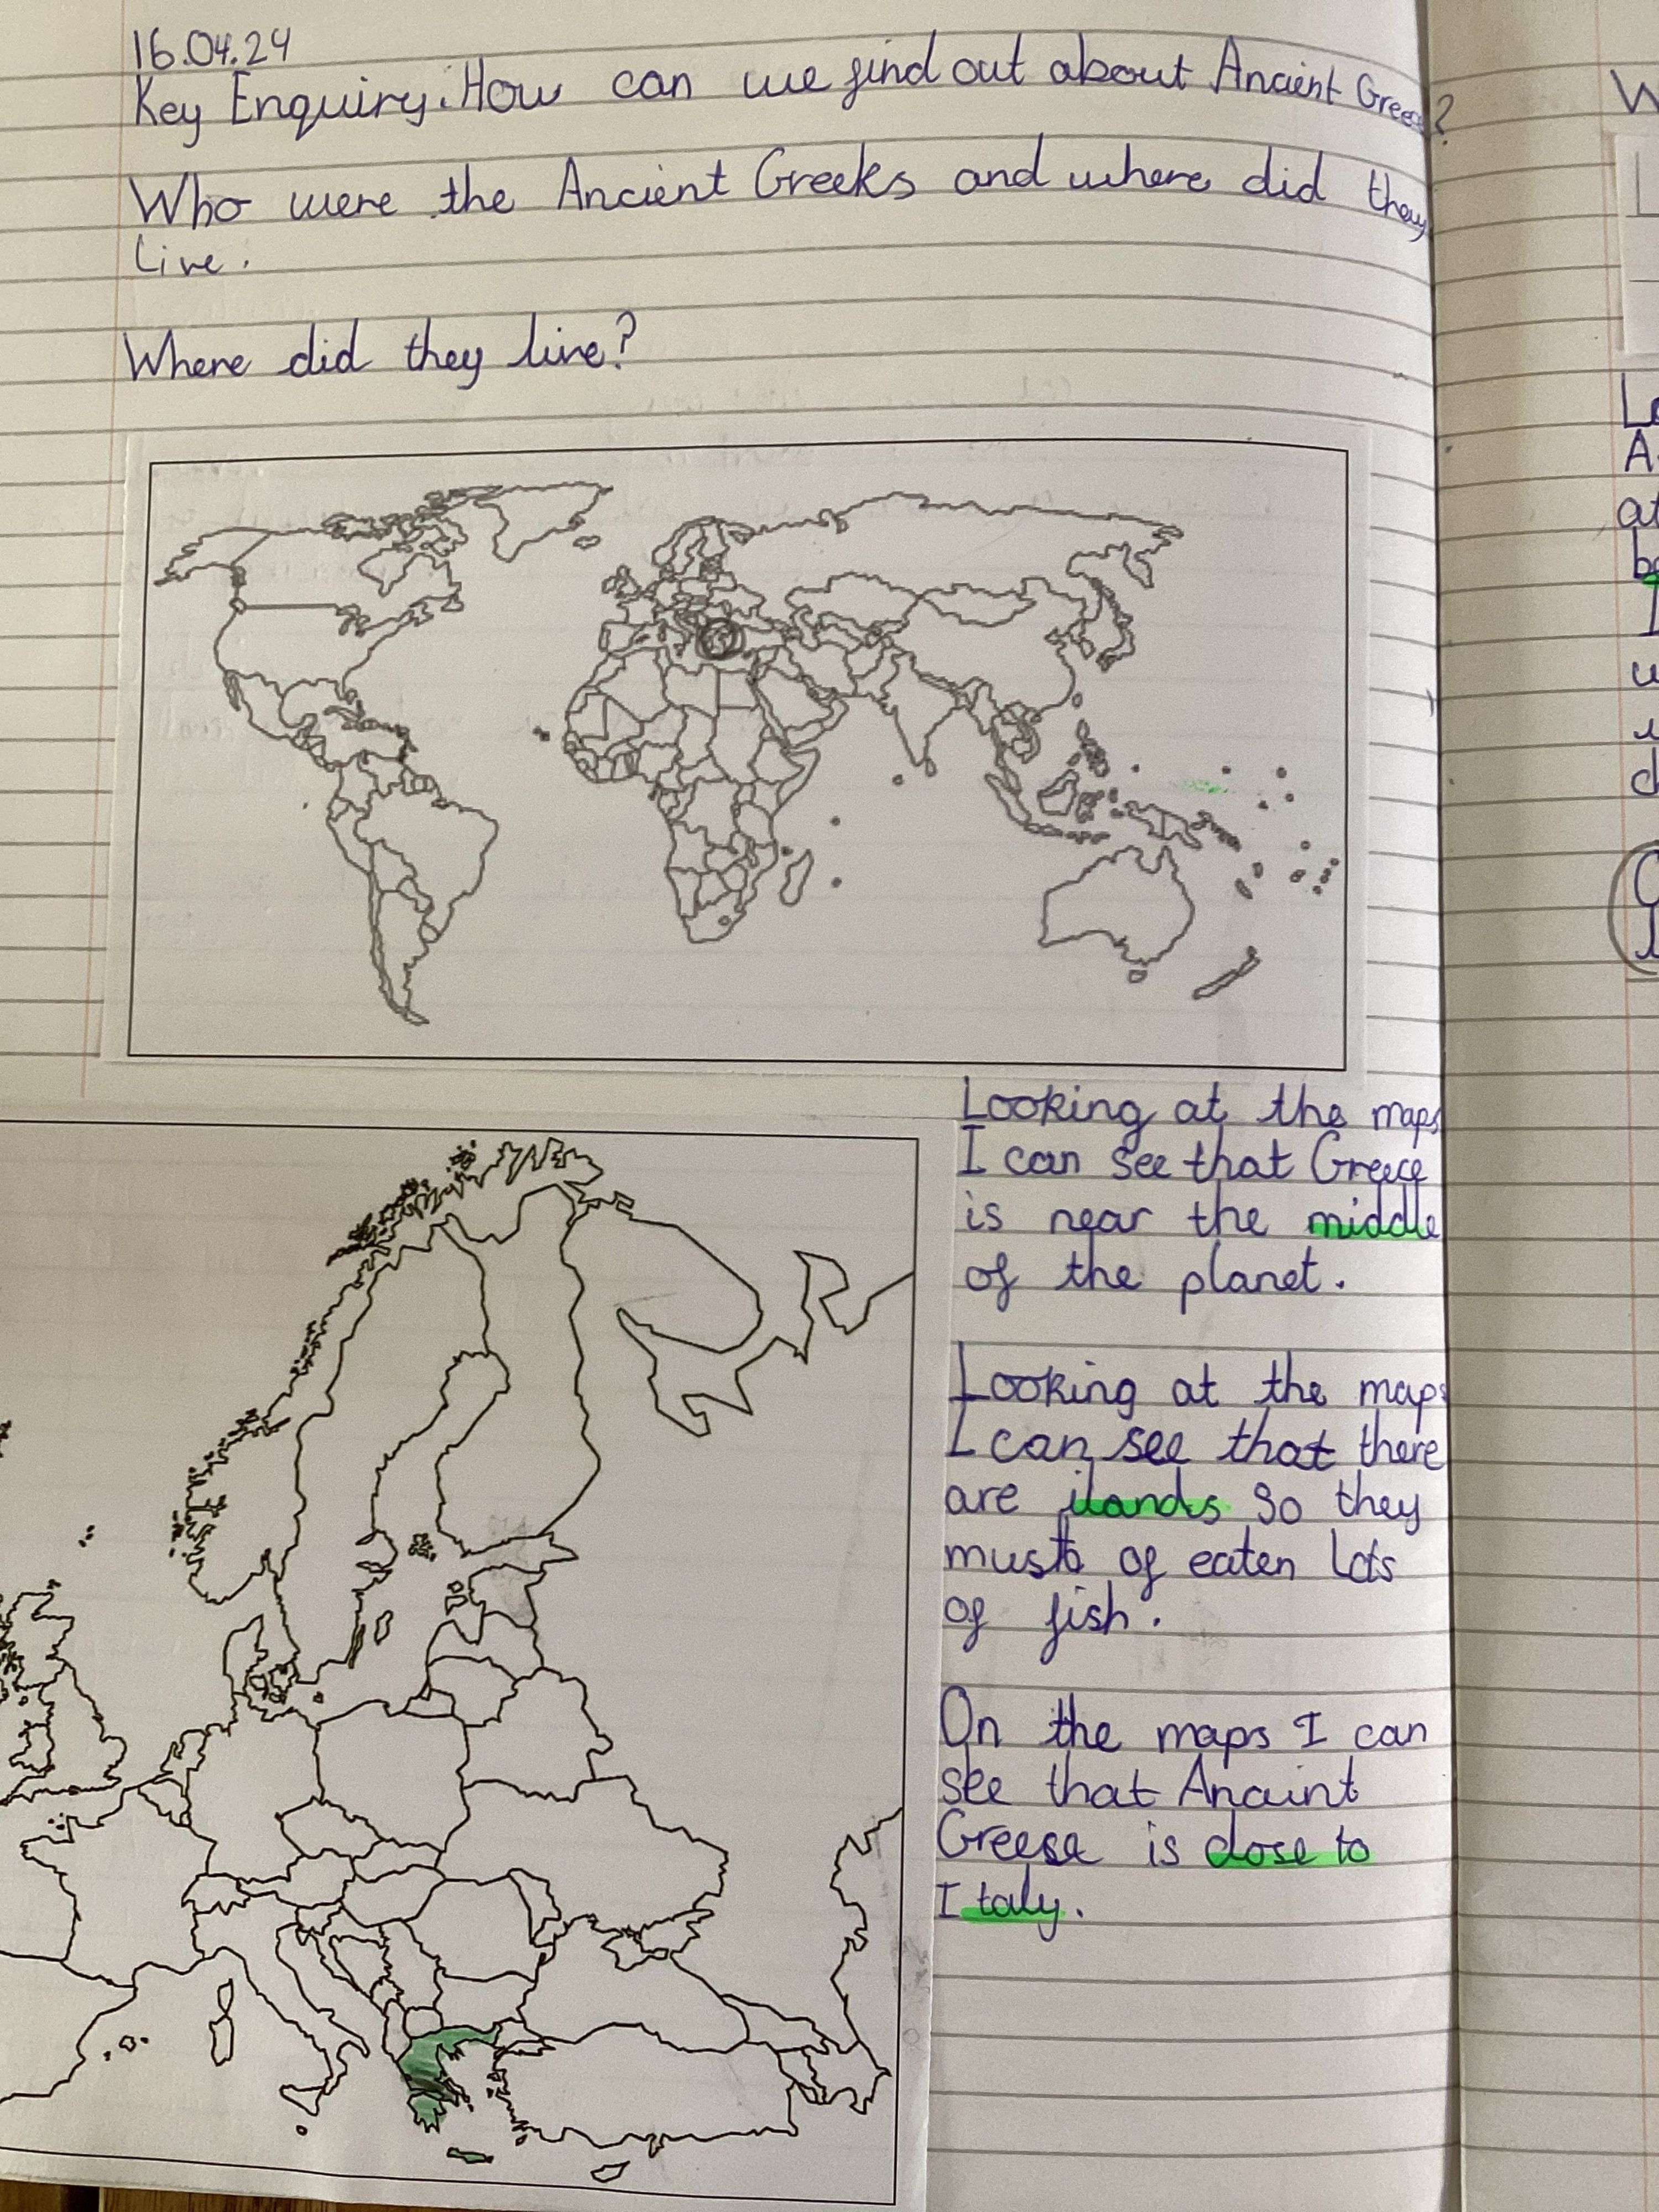 16.04.24
Key Enquiry. How can we find out about Ancient Greece?
Who were the Ancient Greeks and where did they
live.
Where did they live?
Looking at the maps
I can see that Greece
is near the middle
of the planet.
Looking at the maps
I can see that there
are ilands so they
must of eaten lots
of fish.
On the maps I can
see that Anciunt
Greese is close to
Italy.
W
L
A
at
be
I
u
d